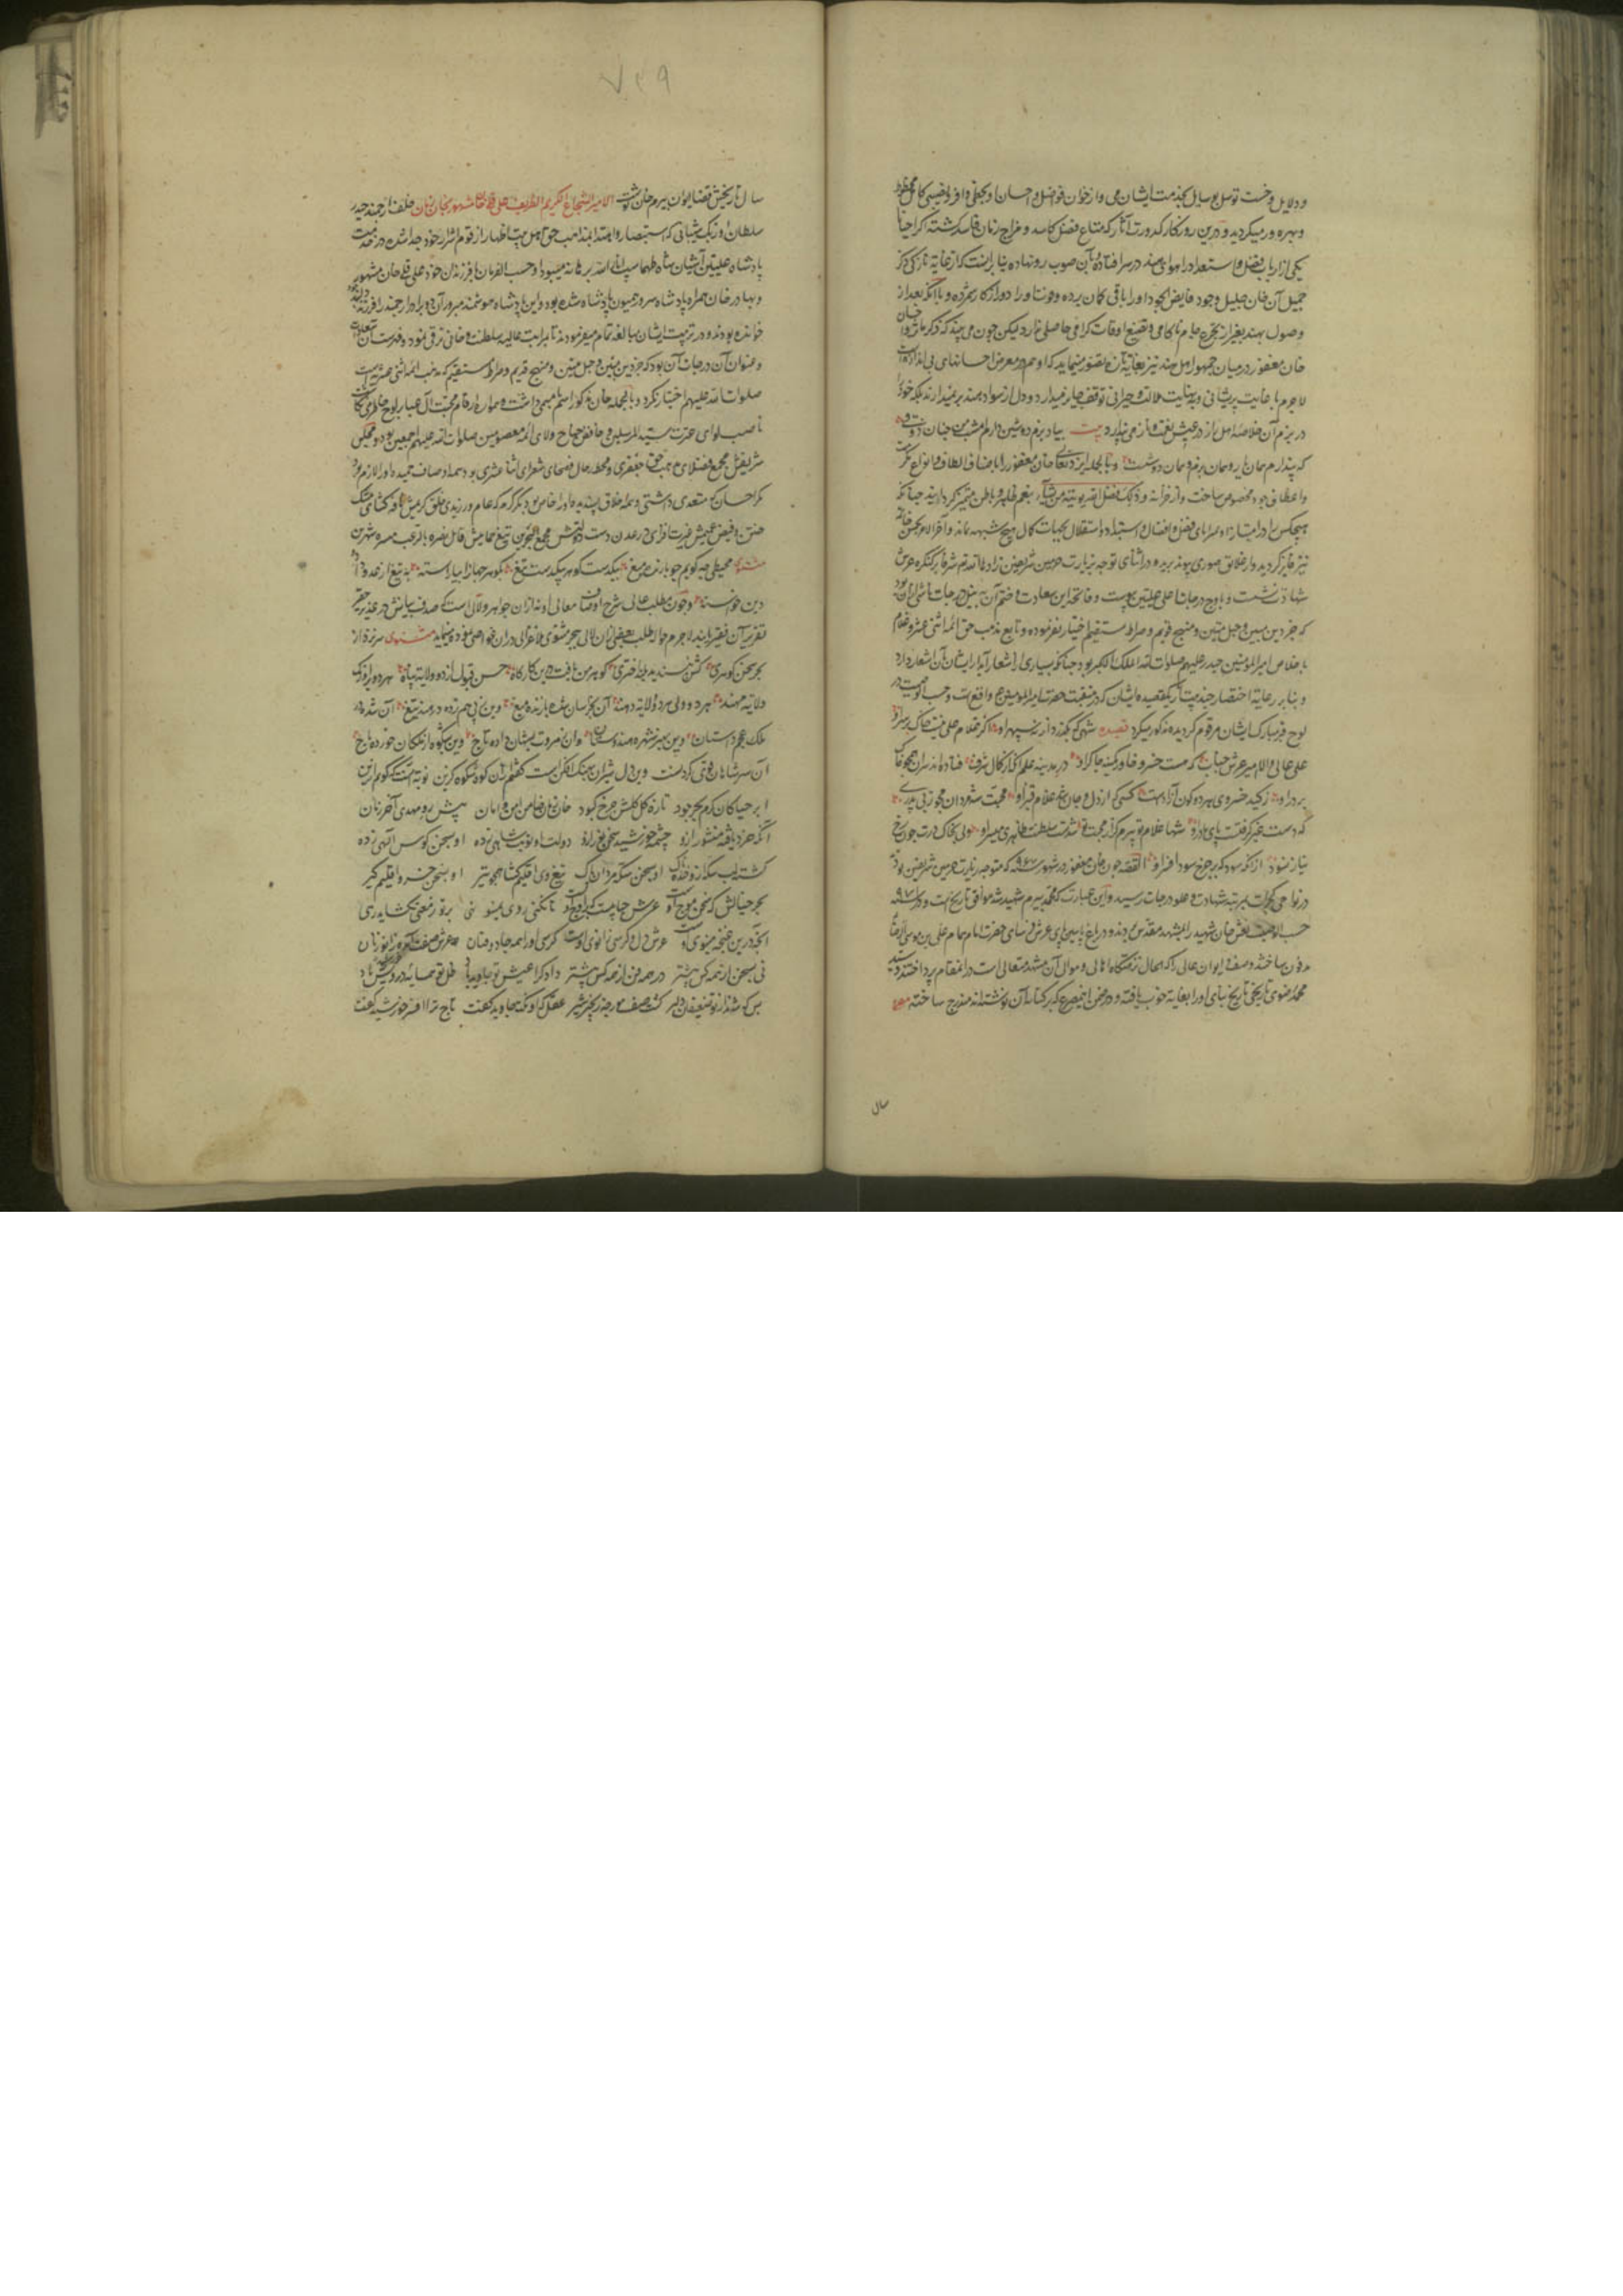 و دلایل و خست توسل بوسایل بخدمت ایشان می و از خوان فواضل و احسان او بحظی وافر و نصیبی کامل محظوظ
و بهره ور میکردید و درین روزکار کدورت آثار که متاع فضل کاسد و مزاج زمان فاسد کشته اکر احیانا
یکی از ارباب فضل و استعداد را هوای هند در سر افتاده بآن صوب رو نهاده بنا بر آنست که از غایة نازکی ذکر
جمیل آن خان جلیل وجود فایض الجود او را باقی کمان برده و فوت او را دور از کار شمرده و با آنکه بعد از
وصول بهند بغیر از تجرع جام ناکامی و تضیع اوقات کرامی حاصلی ندارد لیکن چون می بیند که ذکر مآثر
خان مغفور در میان جمهور اهل هند نیز بغایة تازه تصور مینماید که او هم در معرض احسانهای بی اندازه است
لاجرم با غایت پریشانی و نهایت ملالت و حیرانی توقف جایز میدارد و دل از سواد هند بر نمیدارد بلکه خود را
در بزم آن خلاصه اهل راز در عیش نعمت و ناز می پندارد بیت بیاد بزم دوشین دارم امشب من چنان ذوقی
که پندارم همان یار و همان بزم و همان دوشست و بالجمله ایزد تعالی خان مغفور را باصناف الطاف و انواع
و اعطاف خود مخصوص ساخت و از خزانه و ذلک فضل الله یؤتیه من یشاء بنعم ظاهر و باطن متمیز کردانید چنانکه
هیچکس را در امتیاز او بمزایای فضل و افضال و استبداد و استقلال بجهات کمال هیچ شبهه نماند و آخر الامر بحسن خاتمه
نیز فایز کردید و از علایق صوری پیوند بریده در اثنای توجه بزیارت حرمین شریفین زادهما الله تعالی شرفا بر کنکره عرش
شهادت نشست و باوج درجات اعلی علیین پیوست و فاتحه این سعادت و ختم آن بنیل درجات ناشی از آن بود
که جز دین مبین و حبل متین و منهج قویم و صراط مستقیم اختیار نفرموده و تابع مذهب حق ائمه اثنی عشر و غلام
باخلاص امیر المؤمنین حیدر علیهم صلوات الله الملک الاکبر بود چنانکه بسیاری از اشعار آبدار ایشان بآن اشعار دارد
و بنابر رعایة اختصار چند بیت از یک قصیده ایشان که در منقبت حضرت امیر المومنین ع واقع است و حسب الوصیت در
لوح قبر مبارک ایشان مرقوم کردیده مذکور میکردد قصیده شهی که بگذرد از نه سپهر افسر او اکر غلام علی نیست خاک بر سر او
علی عالی والا امیر عرش جناب که هست خسرو خاور کمینه چاکر او در مدینه علم آنکه از کمال شرف فتاده اند سران همچو خاک
بر در او زکید خسروی هر دو کون آزادست کسی که از دل و جان شد غلام قنبر او محبت شه مردان مجو ز بی پدری
که دست غیر کرفتست پای مادر او شها غلام تو بیرم کز از محبت تو شدست سلطنت ظاهری میسر او ولی بخاک درت چون رخ
نیاز نسود از آنچه سود که بر چرخ سود افسر او القصه چون خان مغفور در شهور سنه ۹۶۸ که متوجه زیارت حرمین شریفین بود
در نواحی کجرات بمرتبه شهادت و علو درجات رسید و این عبارت که محمد بیرم شهید شد موافق تاریخ است و در سنه ۹۸۵
حسب الوصیت نعش خان شهید را بمشهد مقدس بردند و در باغ پایین پای عرش فرسای حضرت امام همام علی بن موسی الرضا
مدفون ساختند و صفه و ایوان عالی را که الحال نزهتکاه اهالی و موالی آن مشهد متعالی است در آنمقام پرداختند و سید
محمد رضوی تاریخی تاریخ بنای او را بغایة خوب یافته و در ضمن این مصرع که بر کتابه آن نوشته اند مندرج ساخته مصرع
سال
۷۳۹
سال تاریخش قضا ایوان بیرم خان نوشت الامیر الشجاع الکریم الظریف علی قلیخان المشهور بخان زمان خلف ارجمند حیدر
سلطان اوزبک شیبانی که استبصار و اهتدا بمذهب حق اهل بیت اطهار از قوم اشرار خود جدا شده در خدمت
پادشاه علیین آشیان شاه طهماسب انار الله برهانه میبود او حسب الفرمان با فرزندان خود علی قلی خان مشهور
و بهادر خان همراه پادشاه مبرور همایون پادشاه شده بود و این پادشاه هوشمند مبرور آن دو برادر ارجمند را فرزند
خوانده بودند و در تربیت ایشان مبالغه تمام میفرمودند تا بمراتب عالیه سلطنت و خانی ترقی نمود و فهرست
و عنوان آن درجات آن بود که جز دین مبین و حبل متین و منهج قدیم و صراط مستقیم که مذهب ائمه اثنی عشریه است
صلوات الله علیهم اختیار نکرد و بالجمله خان مذکور اسم با مسمی داشت و همواره ارقام محبت آل عبا بر لوح خاطر می نکاشت
ناصب لوای عترت سید المرسلین و خافض جناح ولای ائمه معصومین صلوات الله علیهم اجمعین بود و مجلس
شریفش مجمع فضلای مذهب حق جعفری و محط رحال فصحای شعرای اثنا عشری بود همه اوصاف حمیده او را لازم بود
مکر احسان که متعدی داشتی و همه اخلاق پسندیده او را خاص بود مکر کرم که عام ورزیدی خلق کریمش نافه کشای مشک
ختن و فیض عمیمش غیرت افزای در عدن دست کوهرپاشش مجمع البحرین تیغ حمایتش قاتل نصره بالرعب مسیره شهرین
مثنوی محیطی چه کویم چو بارنده میغ بیکدست کوهر بیکدست تیغ بکوهر جهان را بیاراسته به تیغ از عدو داد
دین خواسته و چون مطلب عالی شرح اوصاف معالی او نه از آن جواهر و لآلی است که صدف بیانش در عهد زجر حقیر
تقریر آن فقیر یابد لاجرم حواله طلب بعضی از آن لآلی ببحر مثنوی ملا غزالی در آن باب اصلی نموده مینماید مثنوی سر زده از
بحر سخن کوهری کش نسزد دیده بد اختری کوهر من یافته در این کارکاه حسن قبول از دو ولایة پناه هر دو برازنده
ولایة مهند هر دو ولی هر دو ولایة دهند آن بخراسان شده بارنده میغ وین ز پی هم زده در هند تیغ آن شده در
ملک عجم داستان وین بهنر شهره هندوستان وان ز مروت بشهان داده تاج وین بشکوه از ملکان خورده باج
آن سر شاهان قوی کردنست وین دل شیران بهنک افکن است کفتم از آن کوه شکوه کزین نوبة آنست که کویم ازین
ابر حیا کان کرم بحر جود تازه کل کلشن چرخ کبود خان زمان ضامن امن و امان پیش رو مهدی آخر زمان
آنکه خرد یافته منشور ازو چشمه خورشید سخن نور ازو دولت او نوبت شاهی زده او بسخن کوس الهی زده
کشته لب سکه ازو خنده ناک او بسخن سکه مردان پاک تیغ وی اقلیم کشا همچو تیر او بسخن خسرو اقلیم کیر
بحر خیالش که سخن موج اوست عرش جنابیست که بر اوج اوست تا نکنی روی بمینو نهی بر تو ز معنی نکشاید رهی
آنچه درین غنچه مینوی اوست عرش دل و کرسی زانوی اوست کرسی او را همه جادو فنان عرش صفت آمده زانو زنان
نی بسخن از همه کس پیشتر در همه فن از همه کس بیشتر دادکرا عیش تو جاوید باد ظل تو همسایه درویش باد
بس که شد از تو ضعیفان دلیر کشت صف مور چو زنجیر شیر عقل که او نکته بجاوید کفت تاج ترا افسر خورشید کفت